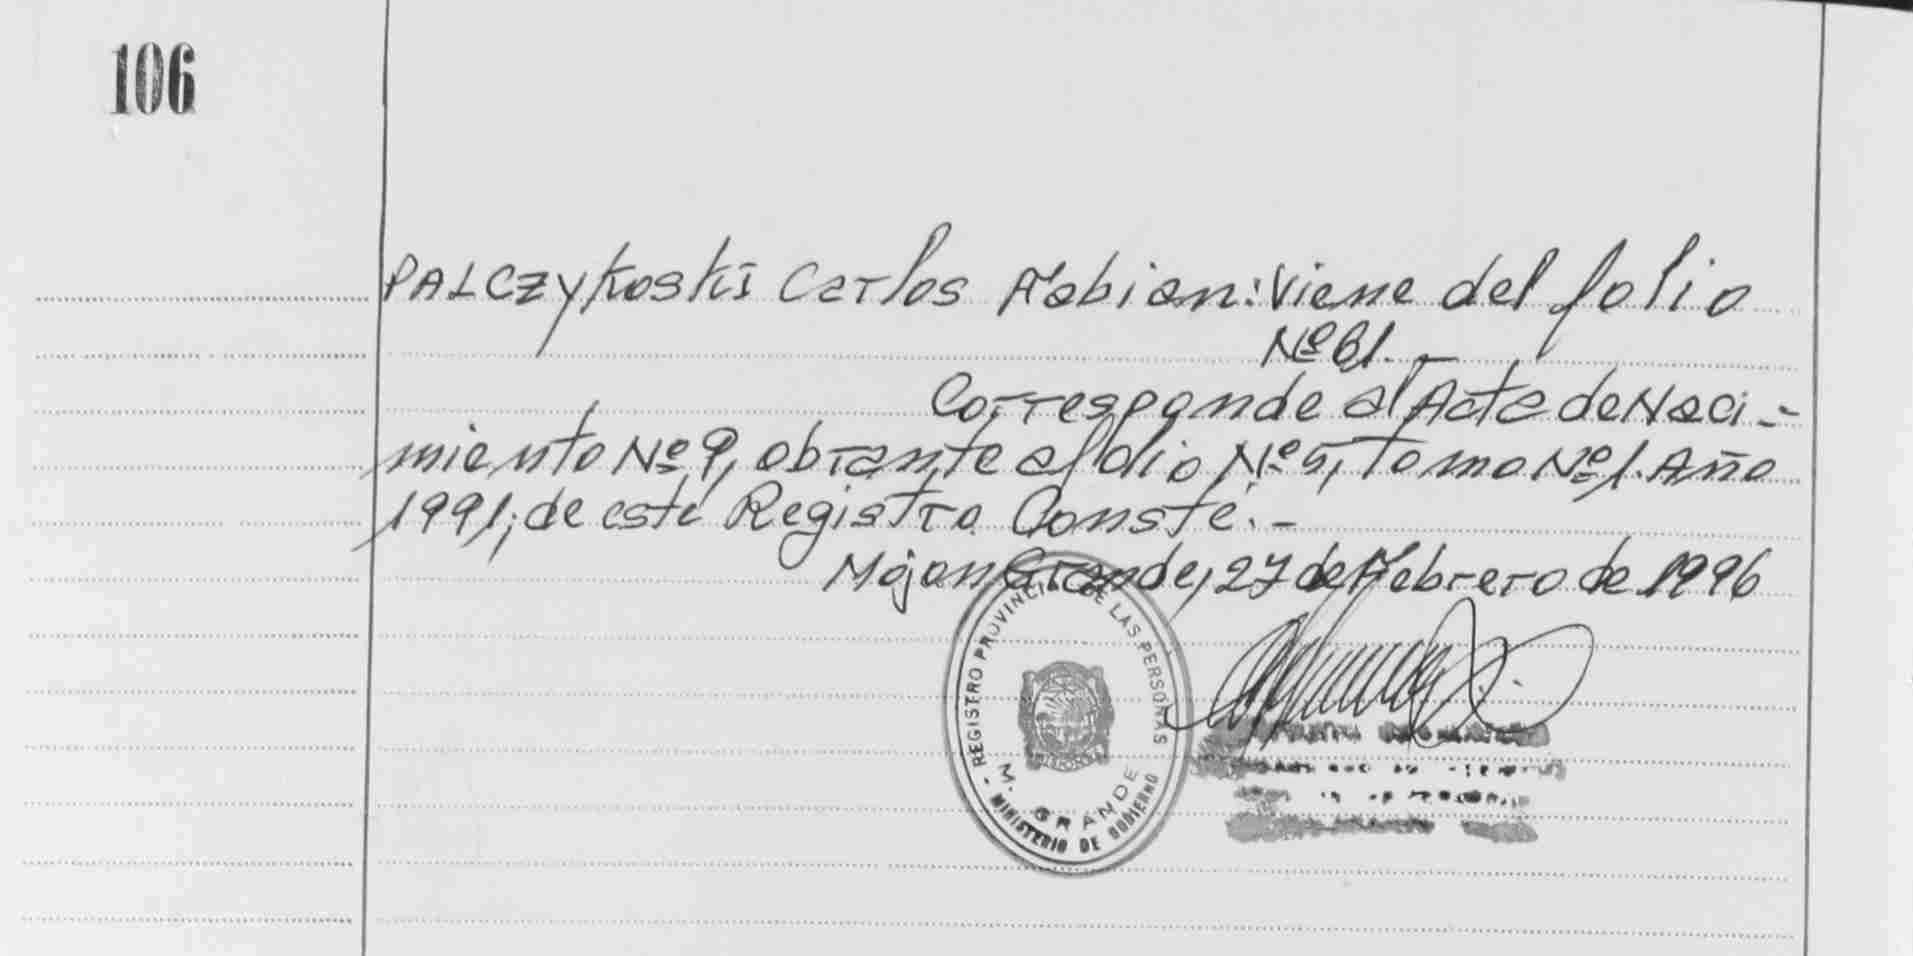 106
PALCZYKoski Carlos Fabian: Viene del folio
Nº 61.-
Corresponde al Acta de Naci-
miento Nº 9, obrante al folio Nº 5, Tomo Nº 1. Año
1991, de este Registro Conste.-
Mojon Grande, 27 de Febrero de 1996
- REGISTRO PROVINCIAL DE LAS PERSONAS
M. GRANDE
- MINISTERIO DE GOBIERNO